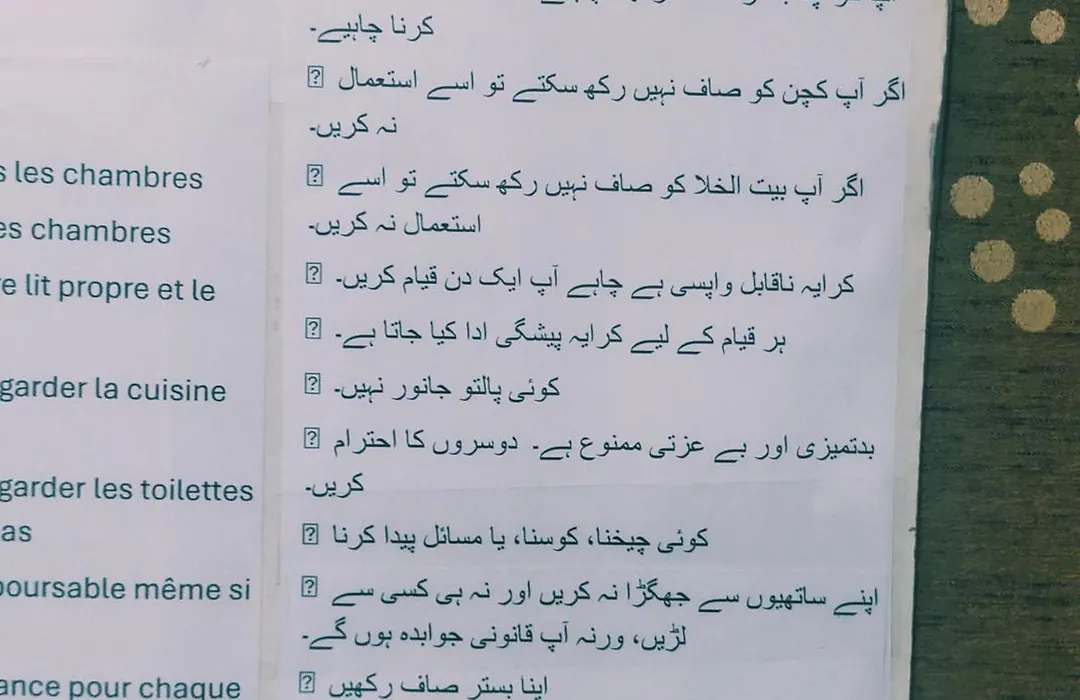 s les chambres
es chambres
e lit propre et le
garder la cuisine
garder les toilettes
as
boursable même si
ance pour chaque
کرنا چاہیے۔
اگر آپ کچن کو صاف نہیں رکھ سکتے تو اسے استعمال
نہ کریں۔
اگر آپ بیت الخلا کو صاف نہیں رکھ سکتے تو اسے
استعمال نہ کریں۔
کرایہ ناقابل واپسی ہے چاہے آپ ایک دن قیام کریں۔
ہر قیام کے لیے کرایہ پیشگی ادا کیا جاتا ہے۔
کوئی پالتو جانور نہیں۔
بدتمیزی اور بے عزتی ممنوع ہے۔ دوسروں کا احترام
کریں۔
کوئی چیخنا، کوسنا، یا مسائل پیدا کرنا
اپنے ساتھیوں سے جھگڑا نہ کریں اور نہ ہی کسی سے
لڑیں، ورنہ آپ قانونی جوابدہ ہوں گے۔
اپنا بستر صاف رکھیں